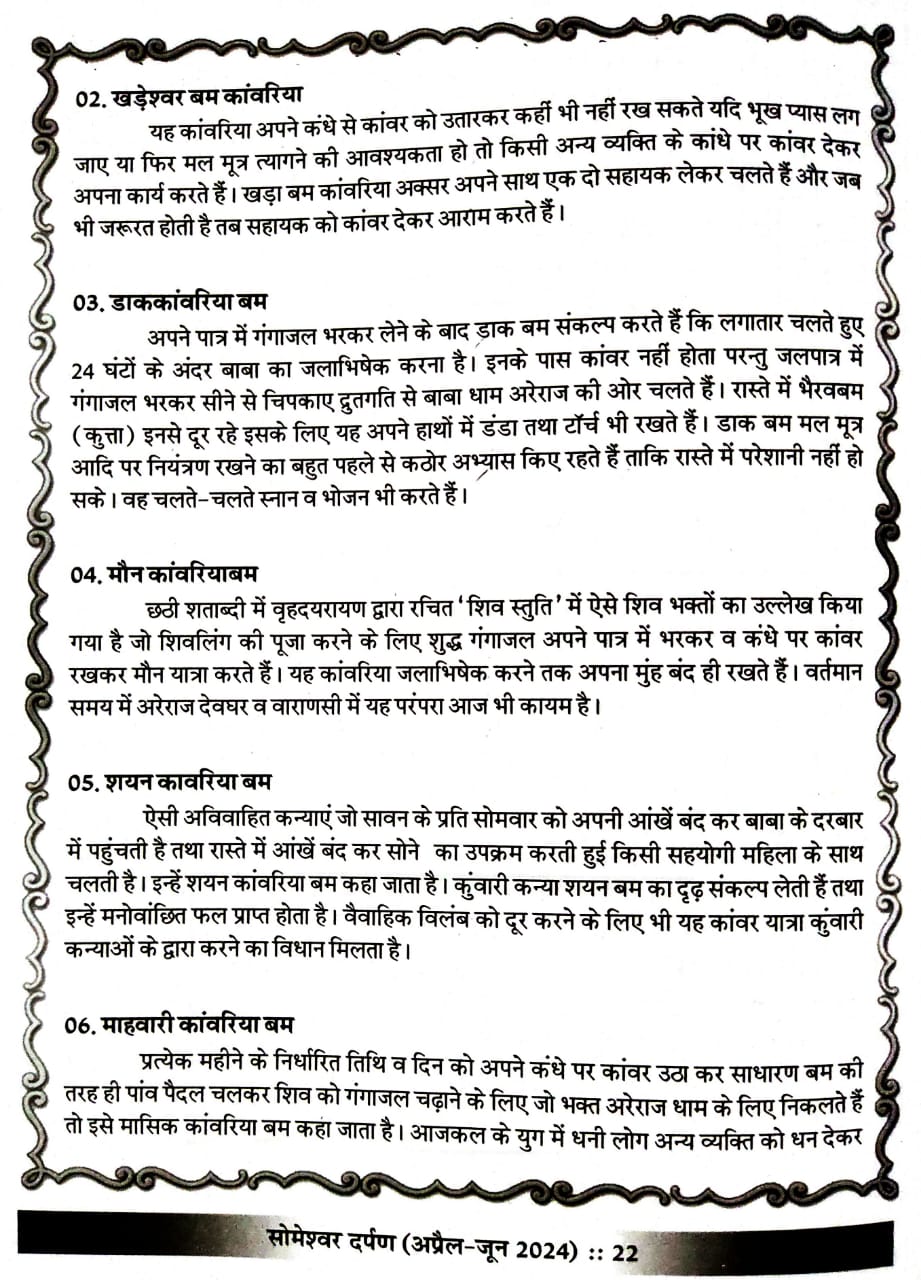 02. खड़ेश्वर बम कांवरिया
यह कांवरिया अपने कंधे से कांवर को उतारकर कहीं भी नहीं रख सकते यदि भूख प्यास लग
जाए या फिर मल मूत्र त्यागने की आवश्यकता हो तो किसी अन्य व्यक्ति के कांधे पर कांवर देकर
अपना कार्य करते हैं। खड़ा बम कांवरिया अक्सर अपने साथ एक दो सहायक लेकर चलते हैं और जब
भी जरूरत होती है तब सहायक को कांवर देकर आराम करते हैं।
03. डाककांवरिया बम
अपने पात्र में गंगाजल भरकर लेने के बाद डाक बम संकल्प करते हैं कि लगातार चलते हुए
24 घंटों के अंदर बाबा का जलाभिषेक करना है। इनके पास कांवर नहीं होता परन्तु जलपात्र में
गंगाजल भरकर सीने से चिपकाए द्रुतगति से बाबा धाम अरेराज की ओर चलते हैं। रास्ते में भैरवबम
(कुत्ता) इनसे दूर रहे इसके लिए यह अपने हाथों में डंडा तथा टॉर्च भी रखते हैं। डाक बम मल मूत्र
आदि पर नियंत्रण रखने का बहुत पहले से कठोर अभ्यास किए रहते हैं ताकि रास्ते में परेशानी नहीं हो
सके। वह चलते-चलते स्नान व भोजन भी करते हैं।
04. मौन कांवरियाबम
छठी शताब्दी में वृहदयरायण द्वारा रचित 'शिव स्तुति' में ऐसे शिव भक्तों का उल्लेख किया
गया है जो शिवलिंग की पूजा करने के लिए शुद्ध गंगाजल अपने पात्र में भरकर व कंधे पर कांवर
रखकर मौन यात्रा करते हैं। यह कांवरिया जलाभिषेक करने तक अपना मुंह बंद ही रखते हैं। वर्तमान
समय में अरेराज देवघर व वाराणसी में यह परंपरा आज भी कायम है।
05. शयन कावरिया बम
ऐसी अविवाहित कन्याएं जो सावन के प्रति सोमवार को अपनी आंखें बंद कर बाबा के दरबार
में पहुंचती है तथा रास्ते में आंखें बंद कर सोने का उपक्रम करती हुई किसी सहयोगी महिला के साथ
चलती है। इन्हें शयन कांवरिया बम कहा जाता है। कुंवारी कन्या शयन बम का दृढ़ संकल्प लेती हैं तथा
इन्हें मनोवांछित फल प्राप्त होता है। वैवाहिक विलंब को दूर करने के लिए भी यह कांवर यात्रा कुंवारी
कन्याओं के द्वारा करने का विधान मिलता है।
06. माहवारी कांवरिया बम
प्रत्येक महीने के निर्धारित तिथि व दिन को अपने कंधे पर कांवर उठा कर साधारण बम की
तरह ही पांव पैदल चलकर शिव को गंगाजल चढ़ाने के लिए जो भक्त अरेराज धाम के लिए निकलते हैं
तो इसे मासिक कांवरिया बम कहा जाता है। आजकल के युग में धनी लोग अन्य व्यक्ति को धन देकर
सोमेश्वर दर्पण (अप्रैल-जून 2024) :: 22